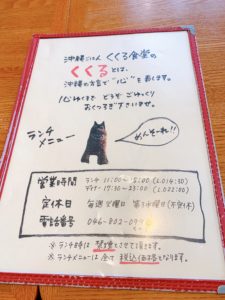 沖縄ごはん くくる食堂の
くくる とは、
沖縄の方言で"心"を表します。
心ゆくまで どうぞ ごゆっくり
おくつろぎ下さいませ。
ランチ
メニュー
めんそーれ!!
営業時間 ランチ 11:00~15:00 (L.O14:30)
ディナー 17:30~23:00 (L.O22:30)
定休日 毎週火曜日 第3水曜日(不定休)
電話番号 046-802-099
※ランチ時は禁煙とさせて頂きます。
※ランチメニューは全て税込価格となります。